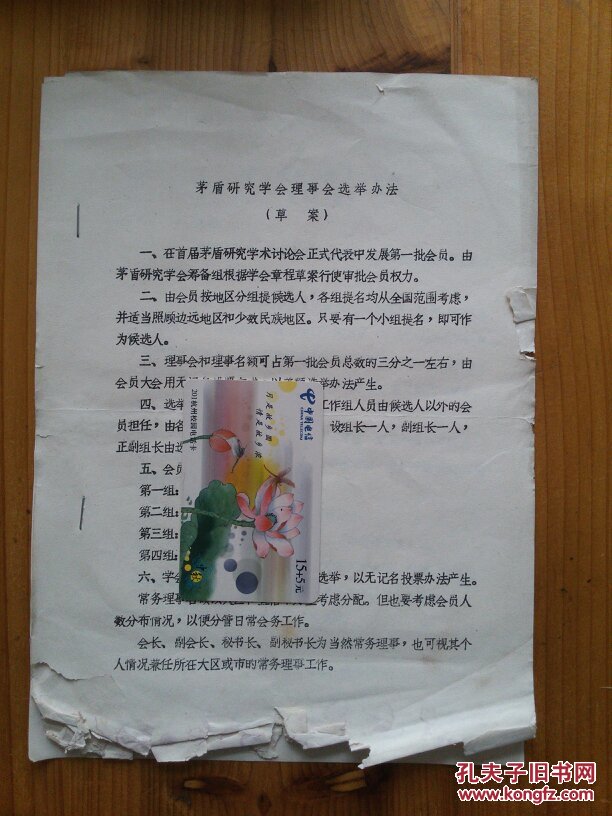 茅盾研究学会理事会选举办法
（草 案）
一、在首届茅盾研究学术讨论会正式代表中发展第一批会员。由
茅盾研究学会筹备组根据学会章程草案行使审批会员权力。
二、由会员按地区分组提候选人，各组提名均从全国范围考虑，
并适当照顾边远地区和少数民族地区。只要有一个小组提名，即可作
为候选人。
三、理事会和理事名额可占第一批会员总数的三分之一左右，由
会员大会用无 办法产生。
四、选举 工作组人员由候选人以外的会
员担任，由各 设组长一人，副组长一人，
正副组长由
五、会员
第一组：
第二组：
第三组：
第四组：
六、学会 选举，以无记名投票办法产生。
常务理事 考虑分配。但也要考虑会员人
数分布情况，以便分管日常会务工作。
会长、副会长、秘书长、副秘书长为当然常务理事，也可视其个
人情况兼任所在大区或市的常务理事工作。
中国电信
CHINA TELECOM
月是故乡圆
情是故乡浓
201杭州校园电话卡
15+5元
孔夫子旧书网
www.kongfz.com